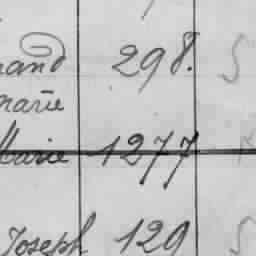 mand 298. S
marie
Marie 1277
Joseph 129 S